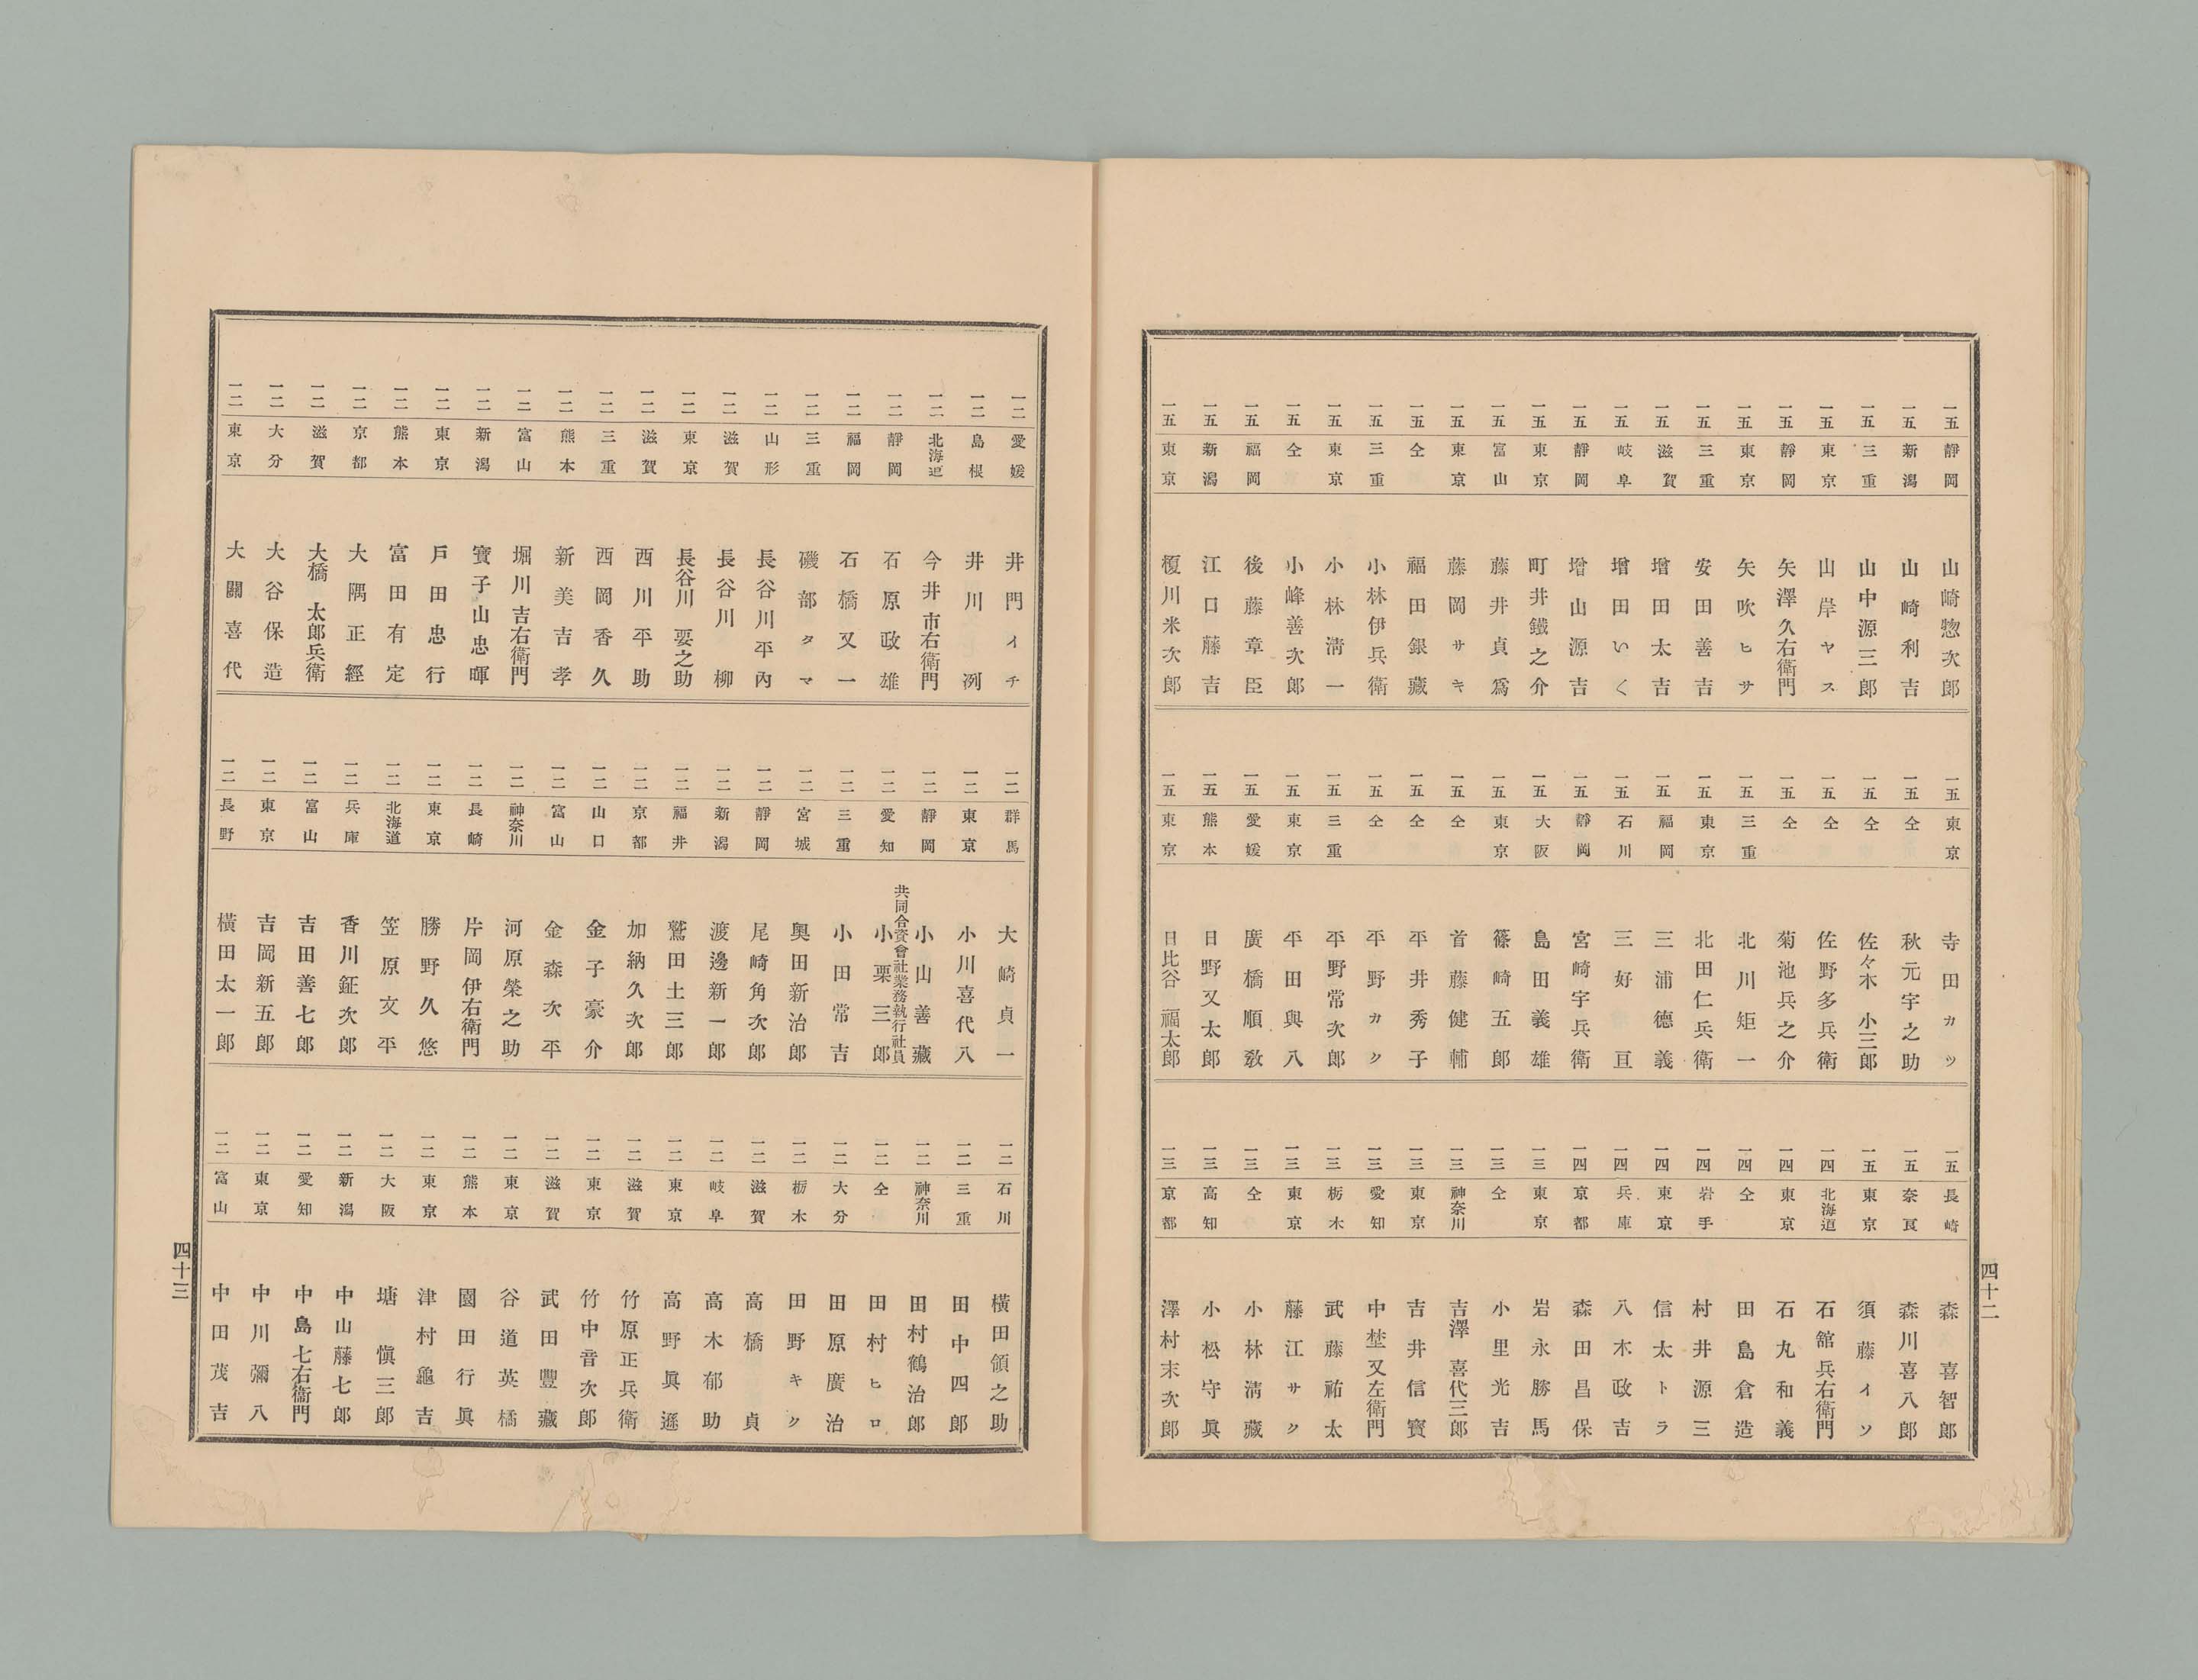 一五 靜岡 山崎惣次郎
一五 新潟 山崎利吉
一五 三重 山中源三郎
一五 東京 山岸ヤス
一五 靜岡 矢澤久右衛門
一五 東京 矢吹ヒサ
一五 三重 安田善吉
一五 滋賀 增田太吉
一五 岐阜 增田いく
一五 靜岡 增山源吉
一五 東京 町井鐵之介
一五 富山 藤井貞爲
一五 東京 藤岡サキ
一五 仝 福田銀藏
一五 三重 小林伊兵衛
一五 東京 小林淸一
一五 仝 小峰善次郎
一五 福岡 後藤章臣
一五 新潟 江口藤吉
一五 東京 榎川米次郎
一五 東京 寺田カツ
一五 仝 秋元宇之助
一五 仝 佐々木小三郎
一五 仝 佐野多兵衛
一五 仝 菊池兵之介
一五 三重 北川矩一
一五 東京 北田仁兵衛
一五 福岡 三浦德義
一五 石川 三好亘
一五 靜岡 宮崎宇兵衛
一五 大阪 島田義雄
一五 東京 篠崎五郎
一五 仝 首藤健輔
一五 仝 平井秀子
一五 仝 平野カク
一五 三重 平野常次郎
一五 東京 平田與八
一五 愛媛 廣橋順敎
一五 熊本 日野又太郎
一五 東京 日比谷福太郎
一五 長崎 森喜智郎
一五 奈良 森川喜八郎
一五 東京 須藤イソ
一四 北海道 石舘兵右衛門
一四 東京 石丸和義
一四 仝 田島倉造
一四 岩手 村井源三
一四 東京 信太トラ
一四 兵庫 八木政吉
一四 京都 森田昌保
一三 東京 岩永勝馬
一三 仝 小里光吉
一三 神奈川 吉澤喜代三郎
一三 東京 吉井信寳
一三 愛知 中埜又左衛門
一三 栃木 武藤祐太
一三 東京 藤江サク
一三 仝 小林淸藏
一三 高知 小松守眞
一三 京都 澤村末次郎
四十二
一二 愛媛 井門イチ
一二 島根 井川洌
一二 北海道 今井市右衛門
一二 靜岡 石原政雄
一二 福岡 石橋又一
一二 三重 磯部タマ
一二 山形 長谷川平內
一二 滋賀 長谷川柳
一二 東京 長谷川要之助
一二 滋賀 西川平助
一二 三重 西岡香久
一二 熊本 新美吉孝
一二 富山 堀川吉右衛門
一二 新潟 寶子山忠暉
一二 東京 戶田忠行
一二 熊本 富田有定
一二 京都 大隅正經
一二 滋賀 大橋太郎兵衛
一二 大分 大谷保造
一二 東京 大關喜代
一二 群馬 大崎貞一
一二 東京 小川喜代八
一二 靜岡 小山善藏
一二 愛知 共同合資會社業務執行社員 小栗三郎
一二 三重 小田常吉
一二 宮城 奧田新治郎
一二 靜岡 尾崎角次郎
一二 新潟 渡邊新一郎
一二 福井 鷲田土三郎
一二 京都 加納久次郎
一二 山口 金子豪介
一二 富山 金森次平
一二 神奈川 河原榮之助
一二 長崎 片岡伊右衛門
一二 東京 勝野久悠
一二 北海道 笠原文平
一二 兵庫 香川鉦次郎
一二 富山 吉田善七郎
一二 東京 吉岡新五郎
一二 長野 橫田太一郎
一二 石川 橫田領之助
一二 三重 田中四郎
一二 神奈川 田村鶴治郎
一二 仝 田村ヒロ
一二 大分 田原廣治
一二 栃木 田野キク
一二 滋賀 高橋貞
一二 岐阜 高木郁助
一二 東京 高野眞遜
一二 滋賀 竹原正兵衛
一二 東京 竹中音次郎
一二 滋賀 武田豐藏
一二 東京 谷道英橘
一二 熊本 園田行眞
一二 東京 津村龜吉
一二 大阪 塘愼三郎
一二 新潟 中山藤七郎
一二 愛知 中島七右衞門
一二 東京 中川彌八
一二 富山 中田茂吉
四十三